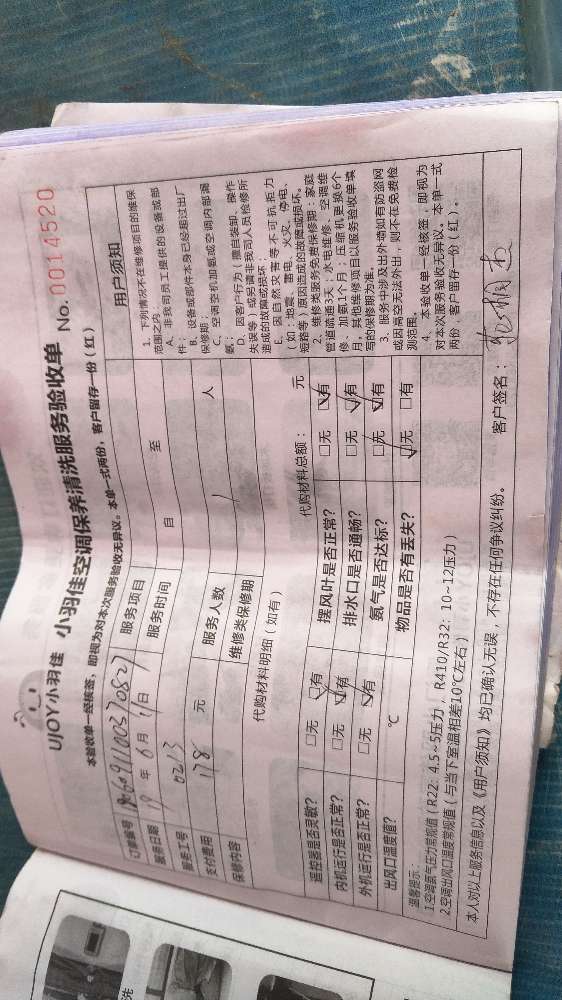 UJOY小羽佳 小羽佳空调保养清洗服务验收单 No. 0014520
本验收单一经核签，即视为对本次服务验收无异议。本单一式两份，客户留存一份（红）
订单编号
服务项目
服务日期 年 6 月 11 日
服务时间 自 至
服务工号 0213
支付费用 118 元
服务人数 1 人
保修内容
维修类保修期
代购材料明细（如有） 代购材料总额： 元
遥控器是否灵敏？ □无 □有 摆风叶是否正常？ □无 □有
内机运行是否正常？ □无 □有 排水口是否通畅？ □无 □有
外机运行是否正常？ □无 □有 氨气是否达标？ □无 □有
出风口温度值？ ℃ 物品是否有丢失？ □无 □有
用户须知
1. 下列情况不在维修项目的维保
范围之内。
A、非我司员工提供的设备或部
件；
B、设备或部件本身已经超过出厂
保修期；
C、空调空机加氨或空调内部漏
氨；
D、因客户行为：擅自装卸、操作
失误等）或另请非我司人员检修所
造成的故障或损坏；
E、因自然灾害等不可抗拒力
（如：地震、雷电、火灾、停电、
短路等）原因造成的故障或损坏。
2、维修类服务免费保修期：家庭
管道疏通3天；水电维修、空调维
修、加氨1个月；压缩机更换6个
月，其他维修项目以服务验收单填
写的保修期为准。
3、服务中涉及出外墙如有防盗网
或因高空无法外出，则不在免费检
测范围。
4、本验收单一经核签，即视为
对本次服务验收无异议。本单一式
两份，客户留存一份（红）。
温馨提示：
1.空调氨气压力常规值（R22：4.5~5压力，R410/R32：10~12压力）
2.空调出风口温度常规值（与当下室温相差10℃左右）
本人对以上服务信息以及《用户须知》均已确认无误，不存在任何争议纠纷。 客户签名：
洗